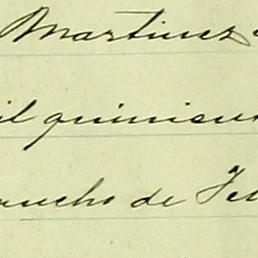 Martinez
il quinien
ancho de Fe